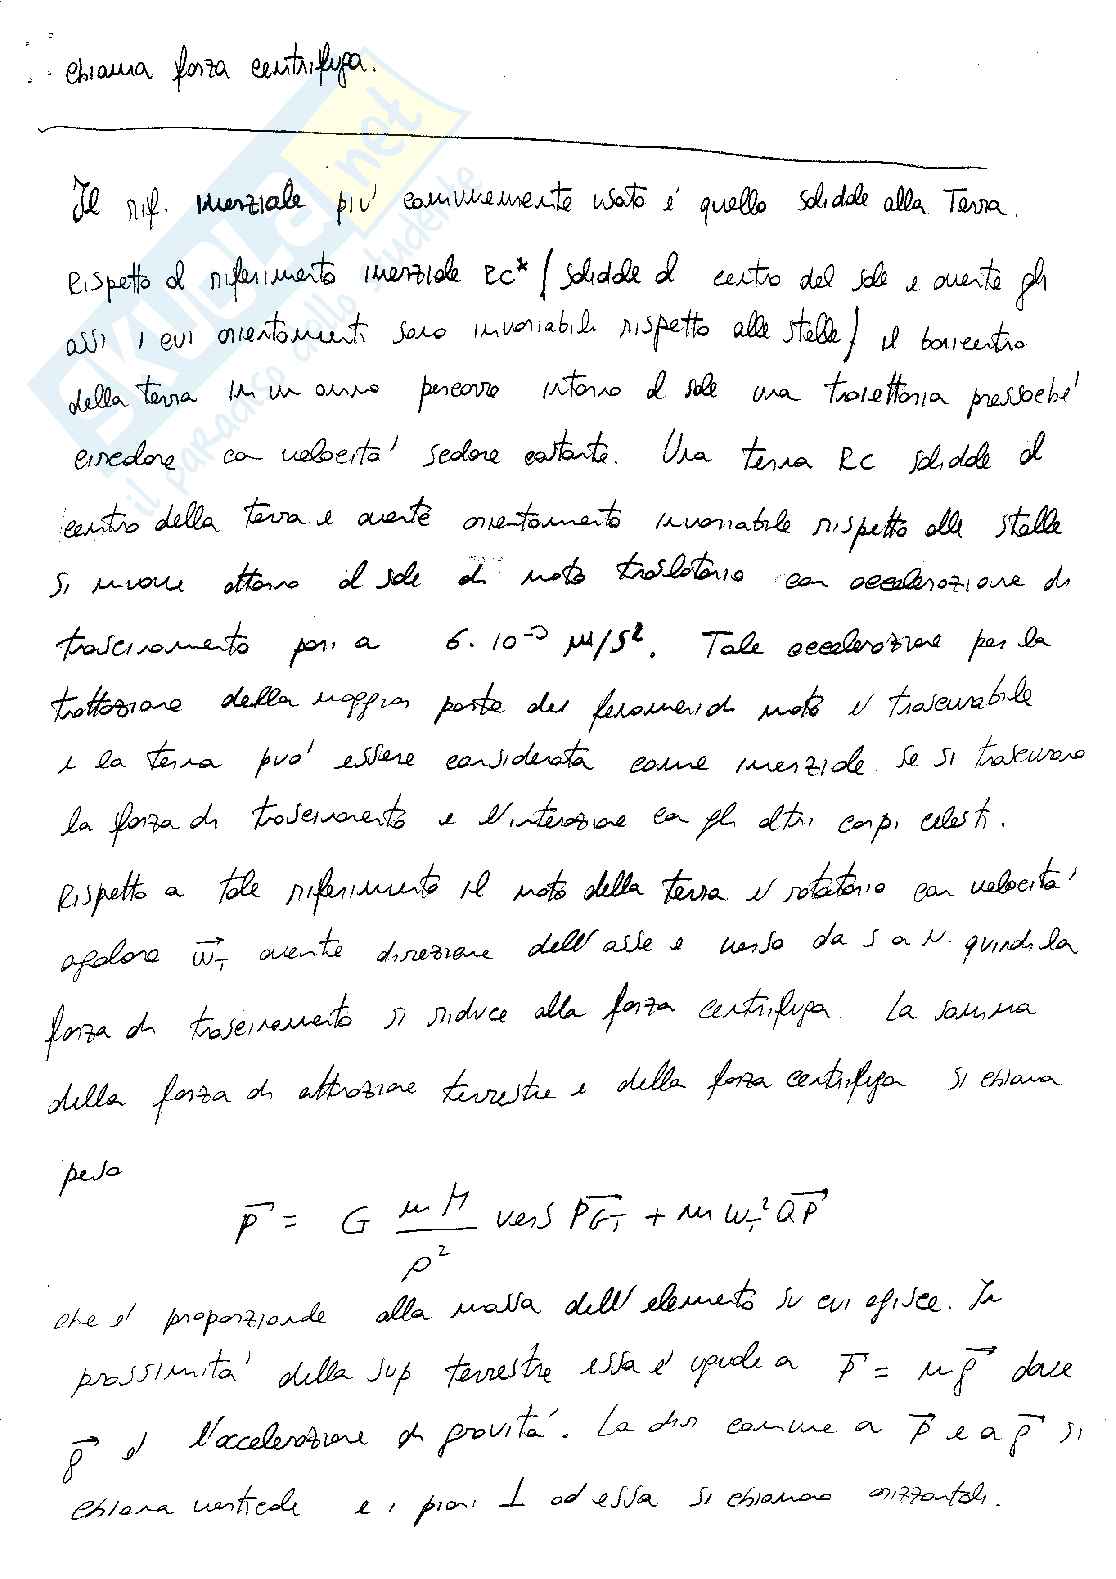 chiama forza centrifuga.
Il rif. inerziale piu' comunemente usato é quello solidale alla Terra.
Rispetto al riferimento inerziale RC* / solidale al centro del sole e avente gli
assi i cui orientamenti sono invariabili rispetto alle stelle / il baricentro
della terra in un anno percorre intorno al sole una traiettoria pressoche'
circolare con velocita' scalare costante. Una terna RC solidale al
centro della terra e avente orientamento invariabile rispetto alle stelle
si muove attorno al sole di moto traslatorio con accelerazione di
trascinamento pari a 6·10⁻³ m/s². Tale accelerazione per la
trattazione della maggior parte dei fenomeni di moto e' trascurabile
e la terna puo' essere considerata come inerziale se si trascurano
la forza di trascinamento e l'interazione con gli altri corpi celesti.
Rispetto a tale riferimento il moto della terra e' rotatorio con velocita'
angolare ω⃗_T avente direzione dell'asse e verso da S a N. quindi la
forza di trascinamento si riduce alla forza centrifuga. La somma
della forza di attrazione terrestre e della forza centrifuga si chiama
peso
p⃗ = G mM/ρ² vers PG⃗_T + m ω_T² QP⃗
che e' proporzionale alla massa dell'elemento su cui agisce. In
prossimita' della sup terrestre essa e' uguale a p⃗ = mg⃗ dove
g⃗ e' l'accelerazione di gravita'. La dir comune a p⃗ e a g⃗ si
chiama verticale e i piani ⊥ ad essa si chiamano orizzontali.
SKUOLA.net
il paradiso dello studente